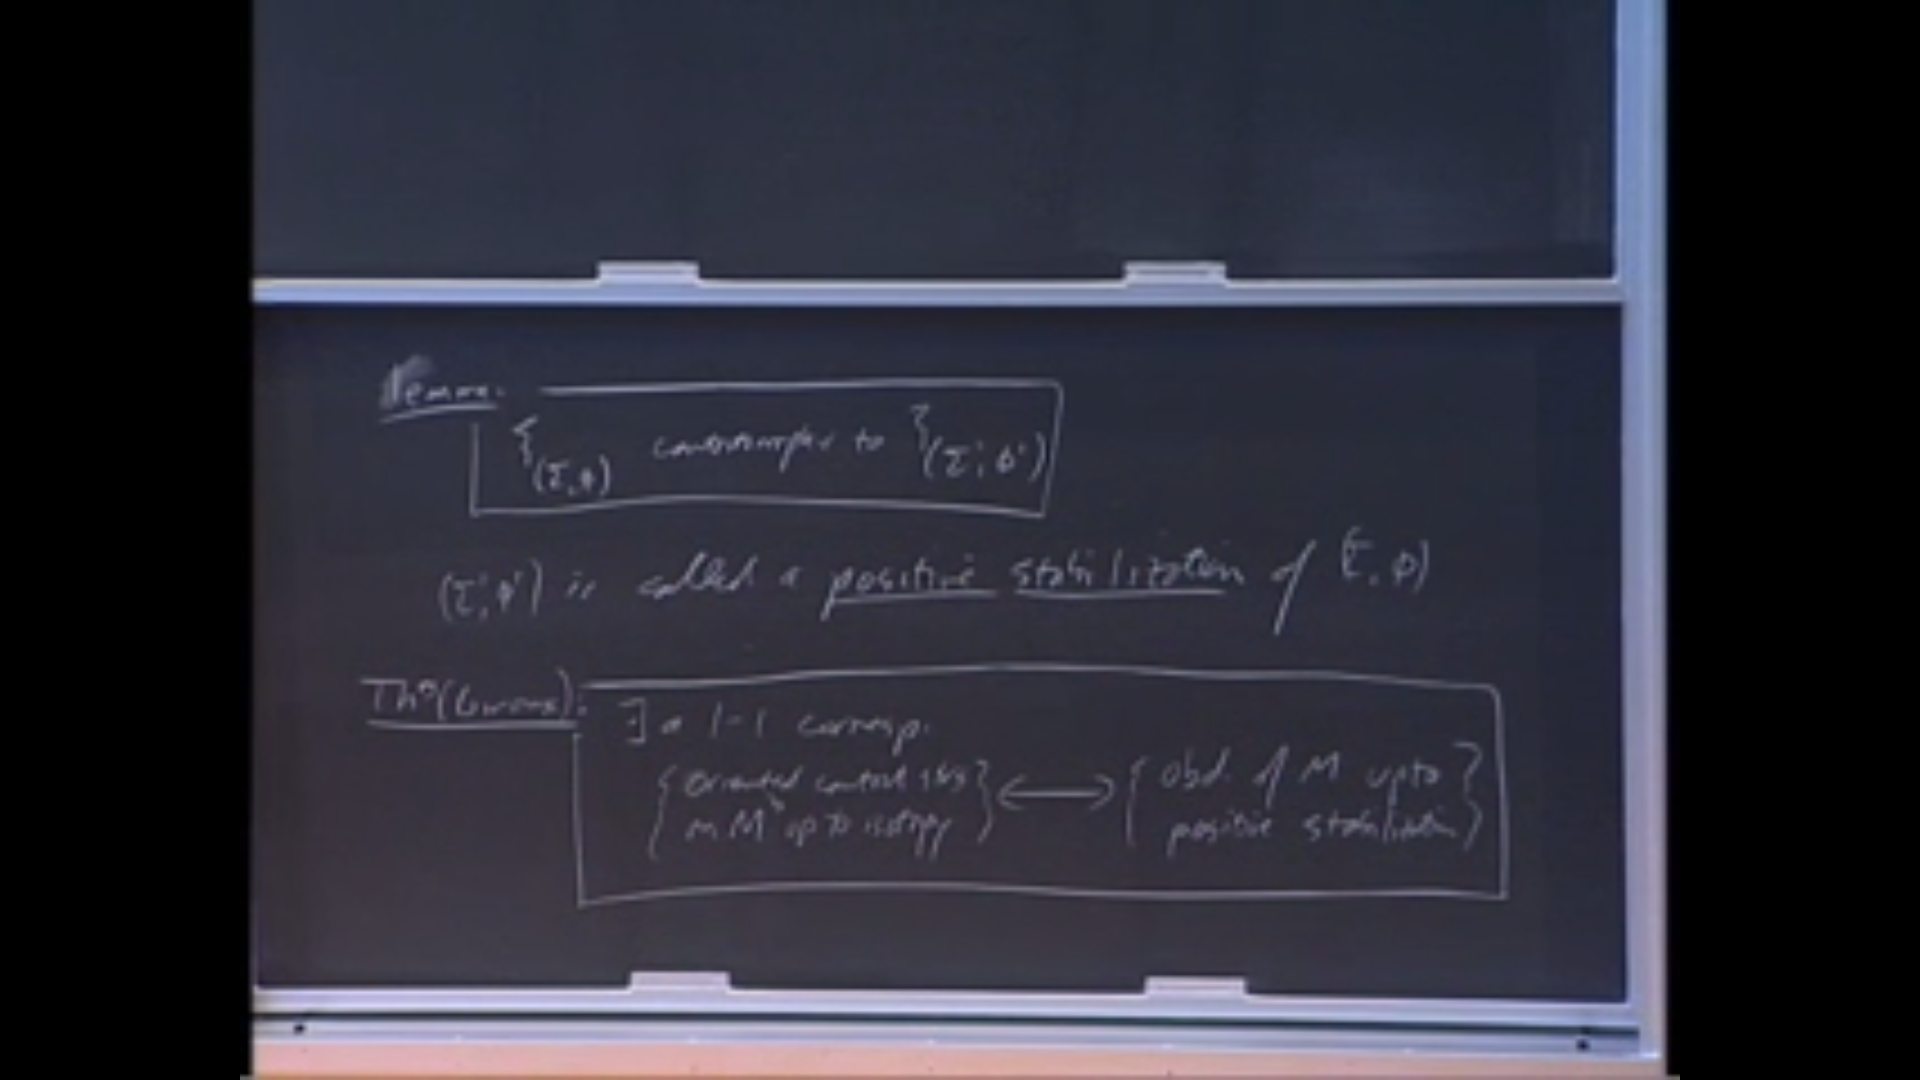 Lemma:
ξ(Σ,φ) contactomorphic to ξ(Σ',φ')
(Σ',φ') is called a positive stabilization of (Σ,φ)
Thm (Giroux):
∃ a 1-1 corresp.
{ oriented contact strs in M³ up to isotopy } ⟷ { obd. of M up to positive stabilization }